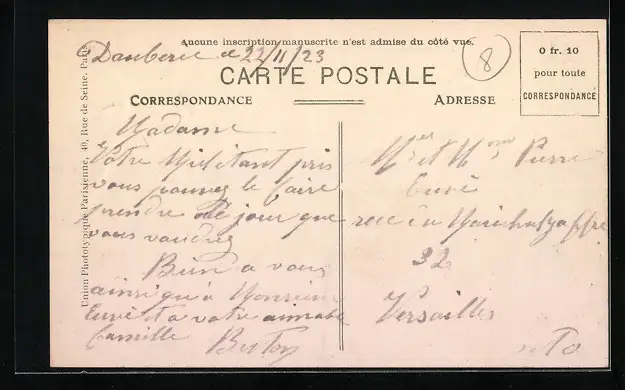 Aucune inscription manuscrite n'est admise du côté vue.
22/11/23
8
CARTE POSTALE
0 fr. 10
pour toute
CORRESPONDANCE
CORRESPONDANCE
ADRESSE
Union Phototypique Parisienne, 40, Rue de Seine. Paris
Madame
Votre pris
vous pouvez le faire
prendre le jour que
vous voudrez
Bien a vous
ainsi qu'à Monsieur
et a votre aimable
famille
Mr et Mme Pierre
rue du
32
Versailles